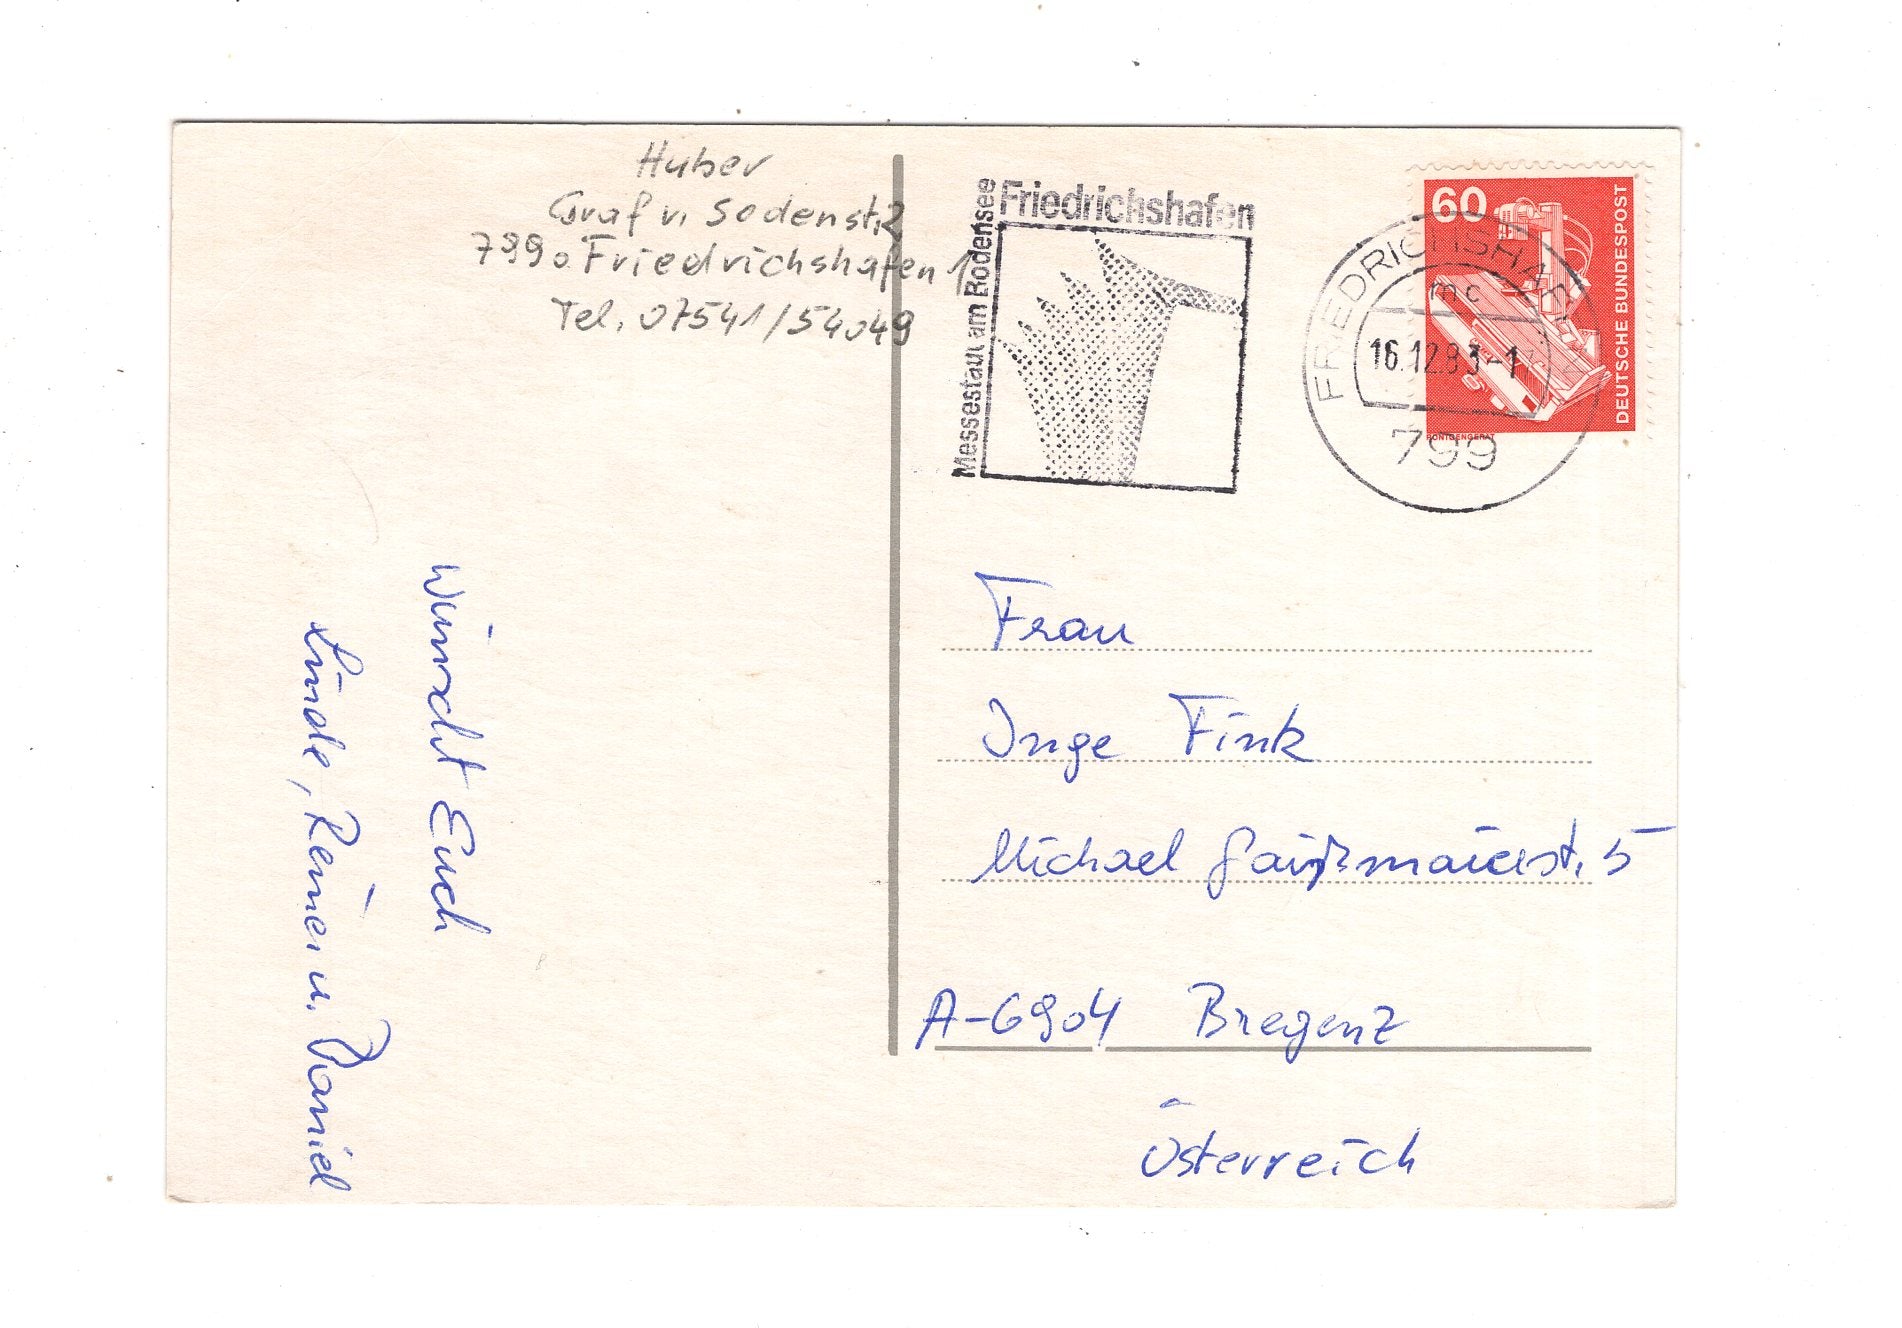 Huber
Graf v. Sodenst. 2
7990 Friedrichshafen 1
Tel. 07541/54049
Friedrichshafen
Messestadt am Bodensee
60
DEUTSCHE BUNDESPOST
RÖNTGENGERÄT
FRIEDRICHSHAFEN
mc
16.12.83-1
799
Frau
Inge Fink
Michael Gaißmaierst. 5
A-6904 Bregenz
Österreich
wünscht Euch
Linde, Reiner u. Daniel